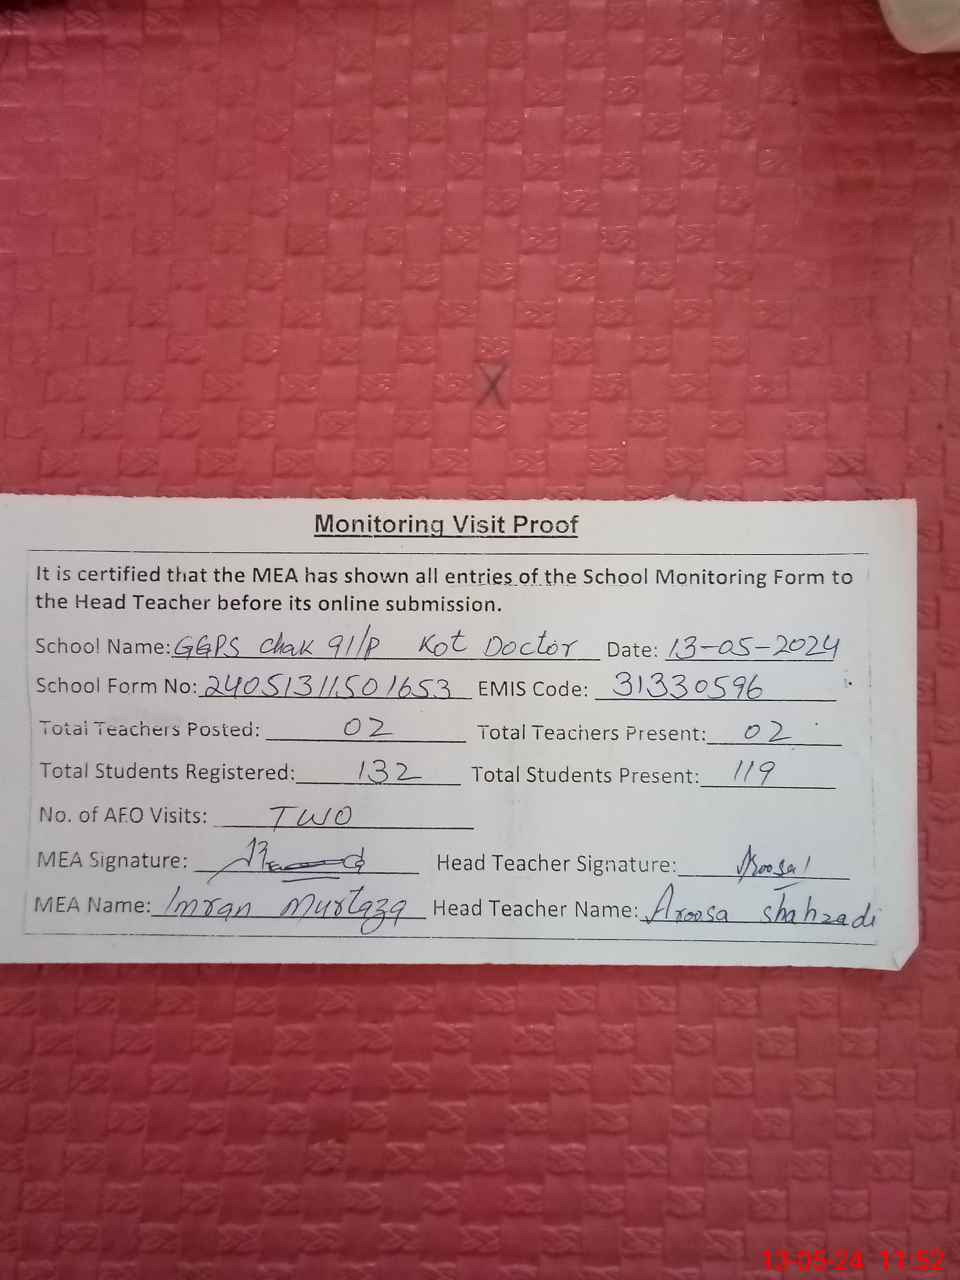 Monitoring Visit Proof
It is certified that the MEA has shown all entries of the School Monitoring Form to
the Head Teacher before its online submission.
School Name: GGPS Chak 91/P Kot Doctor Date: 13-05-2024
School Form No: 24051311501653 EMIS Code: 31330596
Total Teachers Posted: 02 Total Teachers Present: 02
Total Students Registered: 132 Total Students Present: 119
No. of AEO Visits: TWO
MEA Signature: Head Teacher Signature: Aroosa
MEA Name: Imran Murtaza Head Teacher Name: Aroosa Shahzadi
13-05-24 11:52